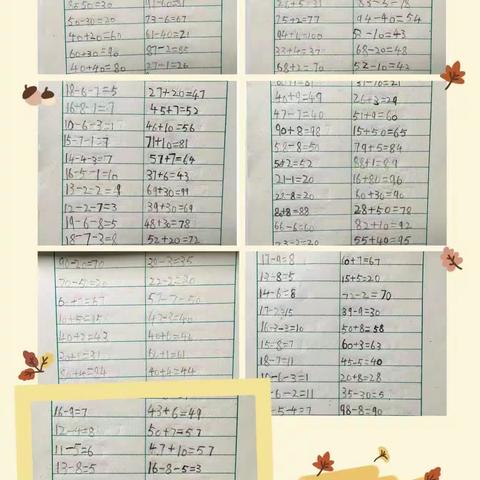 50-30=20 73-6=67
40+20=60 61-40=21
60+30=90 87-2=85
40+40=80 27-1=26
75+2=77 94-40=54
94+6=100 53-10=43
33+4=37 68-20=48
68+2=70 52-10=42
18-6-7=5 27+20=47
16-8-1=7 45+7=52
10-6-3=1 46+10=56
15-7-1=7 71+10=81
14-4-3=7 57+7=64
16-5-1=10 37+6=43
13-2-2=9 69+30=99
12-2-7=3 39+30=69
19-6-8=5 48+30=78
18-7-3=8 52+20=72
40+9=49 26+3=29
47-7=40 51+9=60
90+8=98 15+50=65
58-8=50 79+5=84
50+2=52 88+1=89
21-1=20 16+80=96
28-8=20 60+30=90
80+8=88 28+50=78
66-6=60 82+10=92
23-3=20 55+40=95
90-20=70
70-50=20 22-2=20
57-7=50
10+5=15
40+3=43
40+4=44
17-9=8 60+7=67
13-8=5 15+5=20
14-6=8 72-2=70
17-2=15 39-9=30
16-3-3=10 50+8=58
15-8=7 60+3=63
18-7=11 45-5=40
10-6-3=1 20+8=28
-6-2=11 35-30=5
-5-4=7 98-8=90
16-9=7 43+6=49
12-4=8 50+7=57
11-5=6 47+10=57
13-8=5 16-8-5=3